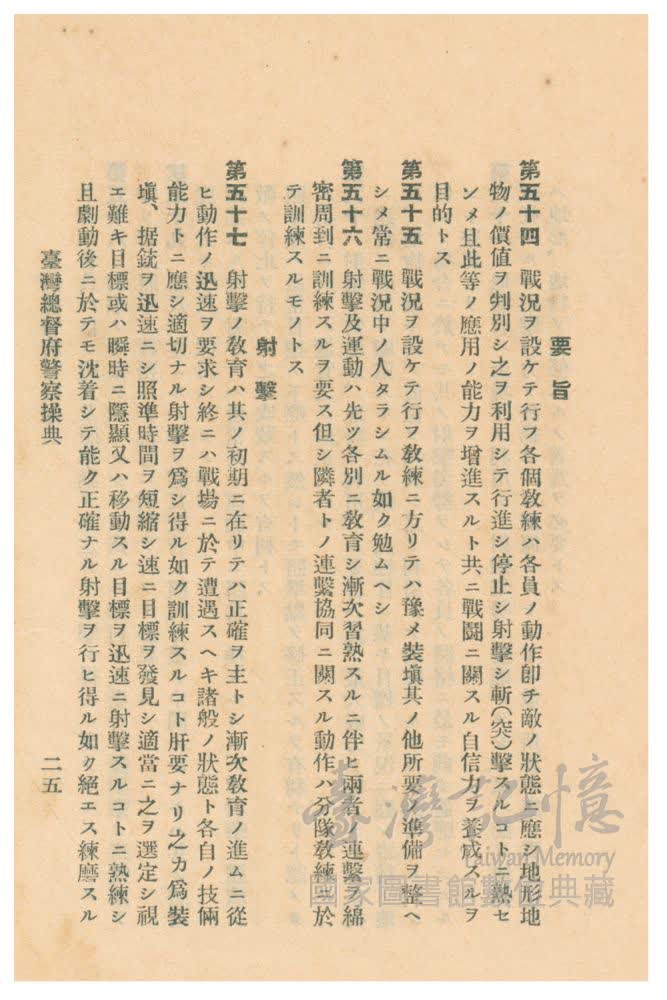 要旨
第五十四　戰況ヲ設ケテ行フ各個敎練ハ各員ノ動作卽チ敵ノ狀態ニ應シ地形地
物ノ價値ヲ判別シ之ヲ利用シテ行進シ停止シ射擊シ斬(突)擊スルコトニ熟セ
シメ且此等ノ應用ノ能力ヲ增進スルト共ニ戰鬪ニ關スル自信力ヲ養成スルヲ
目的トス
第五十五　戰況ヲ設ケテ行フ敎練ニ方リテハ豫メ裝塡其ノ他所要ノ準備ヲ整ヘ
シメ常ニ戰況中ノ人タラシムル如ク勉ムヘシ
第五十六　射擊及運動ハ先ツ各別ニ敎育シ漸次習熟スルニ伴ヒ兩者ノ連繫ヲ綿
密周到ニ訓練スルヲ要ス但シ隣者トノ連繫協同ニ關スル動作ハ分隊敎練ニ於
テ訓練スルモノトス
射擊
第五十七　射擊ノ敎育ハ其ノ初期ニ在リテハ正確ヲ主トシ漸次敎育ノ進ムニ從
ヒ動作ノ迅速ヲ要求シ終ニハ戰場ニ於テ遭遇スヘキ諸般ノ狀態ト各自ノ技倆
能力トニ應シ適切ナル射擊ヲ爲シ得ル如ク訓練スルコト肝要ナリ之カ爲裝
塡、据銃ヲ迅速ニシ照準時間ヲ短縮シ速ニ目標ヲ發見シ適當ニ之ヲ選定シ視
エ難キ目標或ハ瞬時ニ隱顯又ハ移動スル目標ヲ迅速ニ射擊スルコトニ熟練シ
且劇動後ニ於テモ沈着シテ能ク正確ナル射擊ヲ行ヒ得ル如ク絕エス練磨スル
臺灣總督府警察操典
二五
臺灣記憶
Taiwan Memory
國家圖書館數位典藏